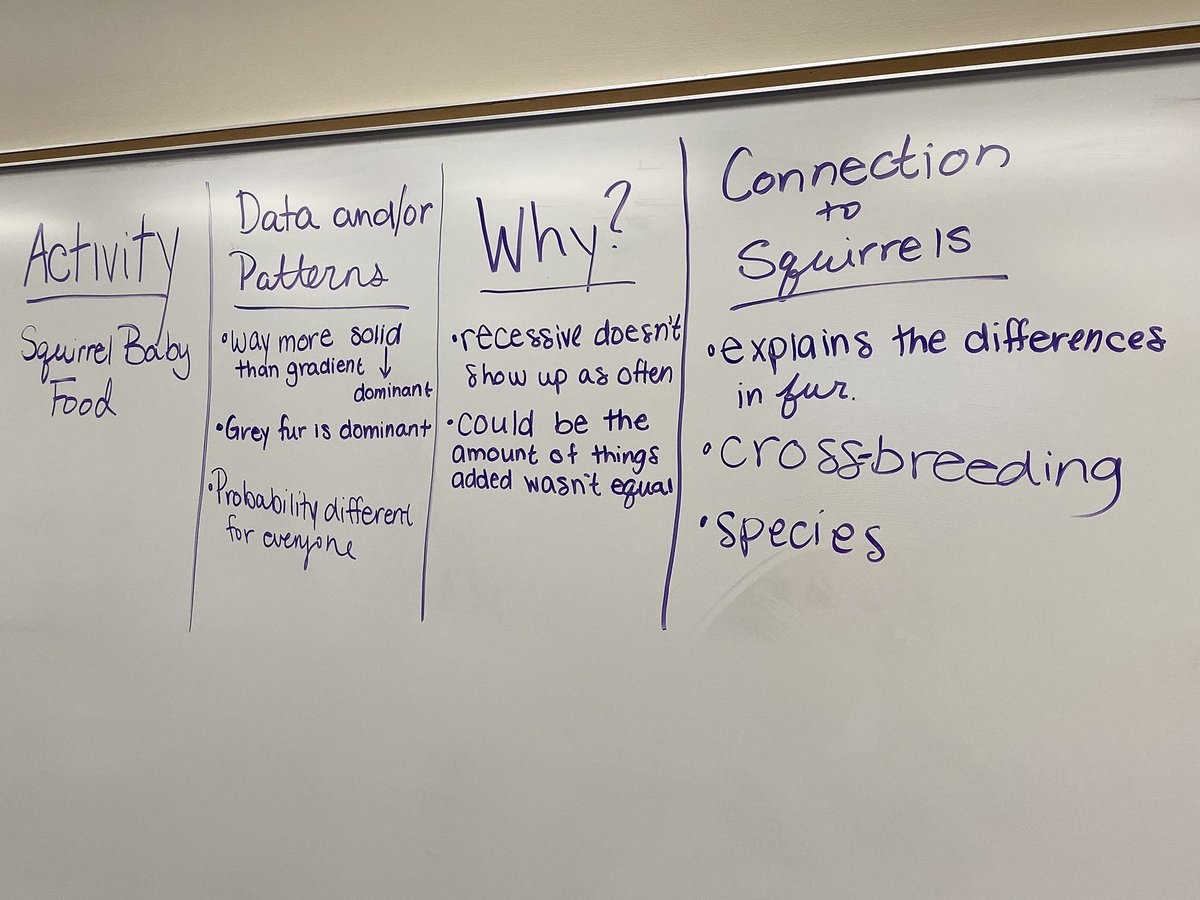 Activity
Squirrel Baby
Food
Data and/or
Patterns
•way more solid
than gradient ↓
dominant
•Grey fur is dominant
•Probability different
for everyone
Why?
•recessive doesn't
show up as often
•could be the
amount of things
added wasn't equal
Connection
to
Squirrels
•explains the differences
in fur.
•cross-breeding
•species